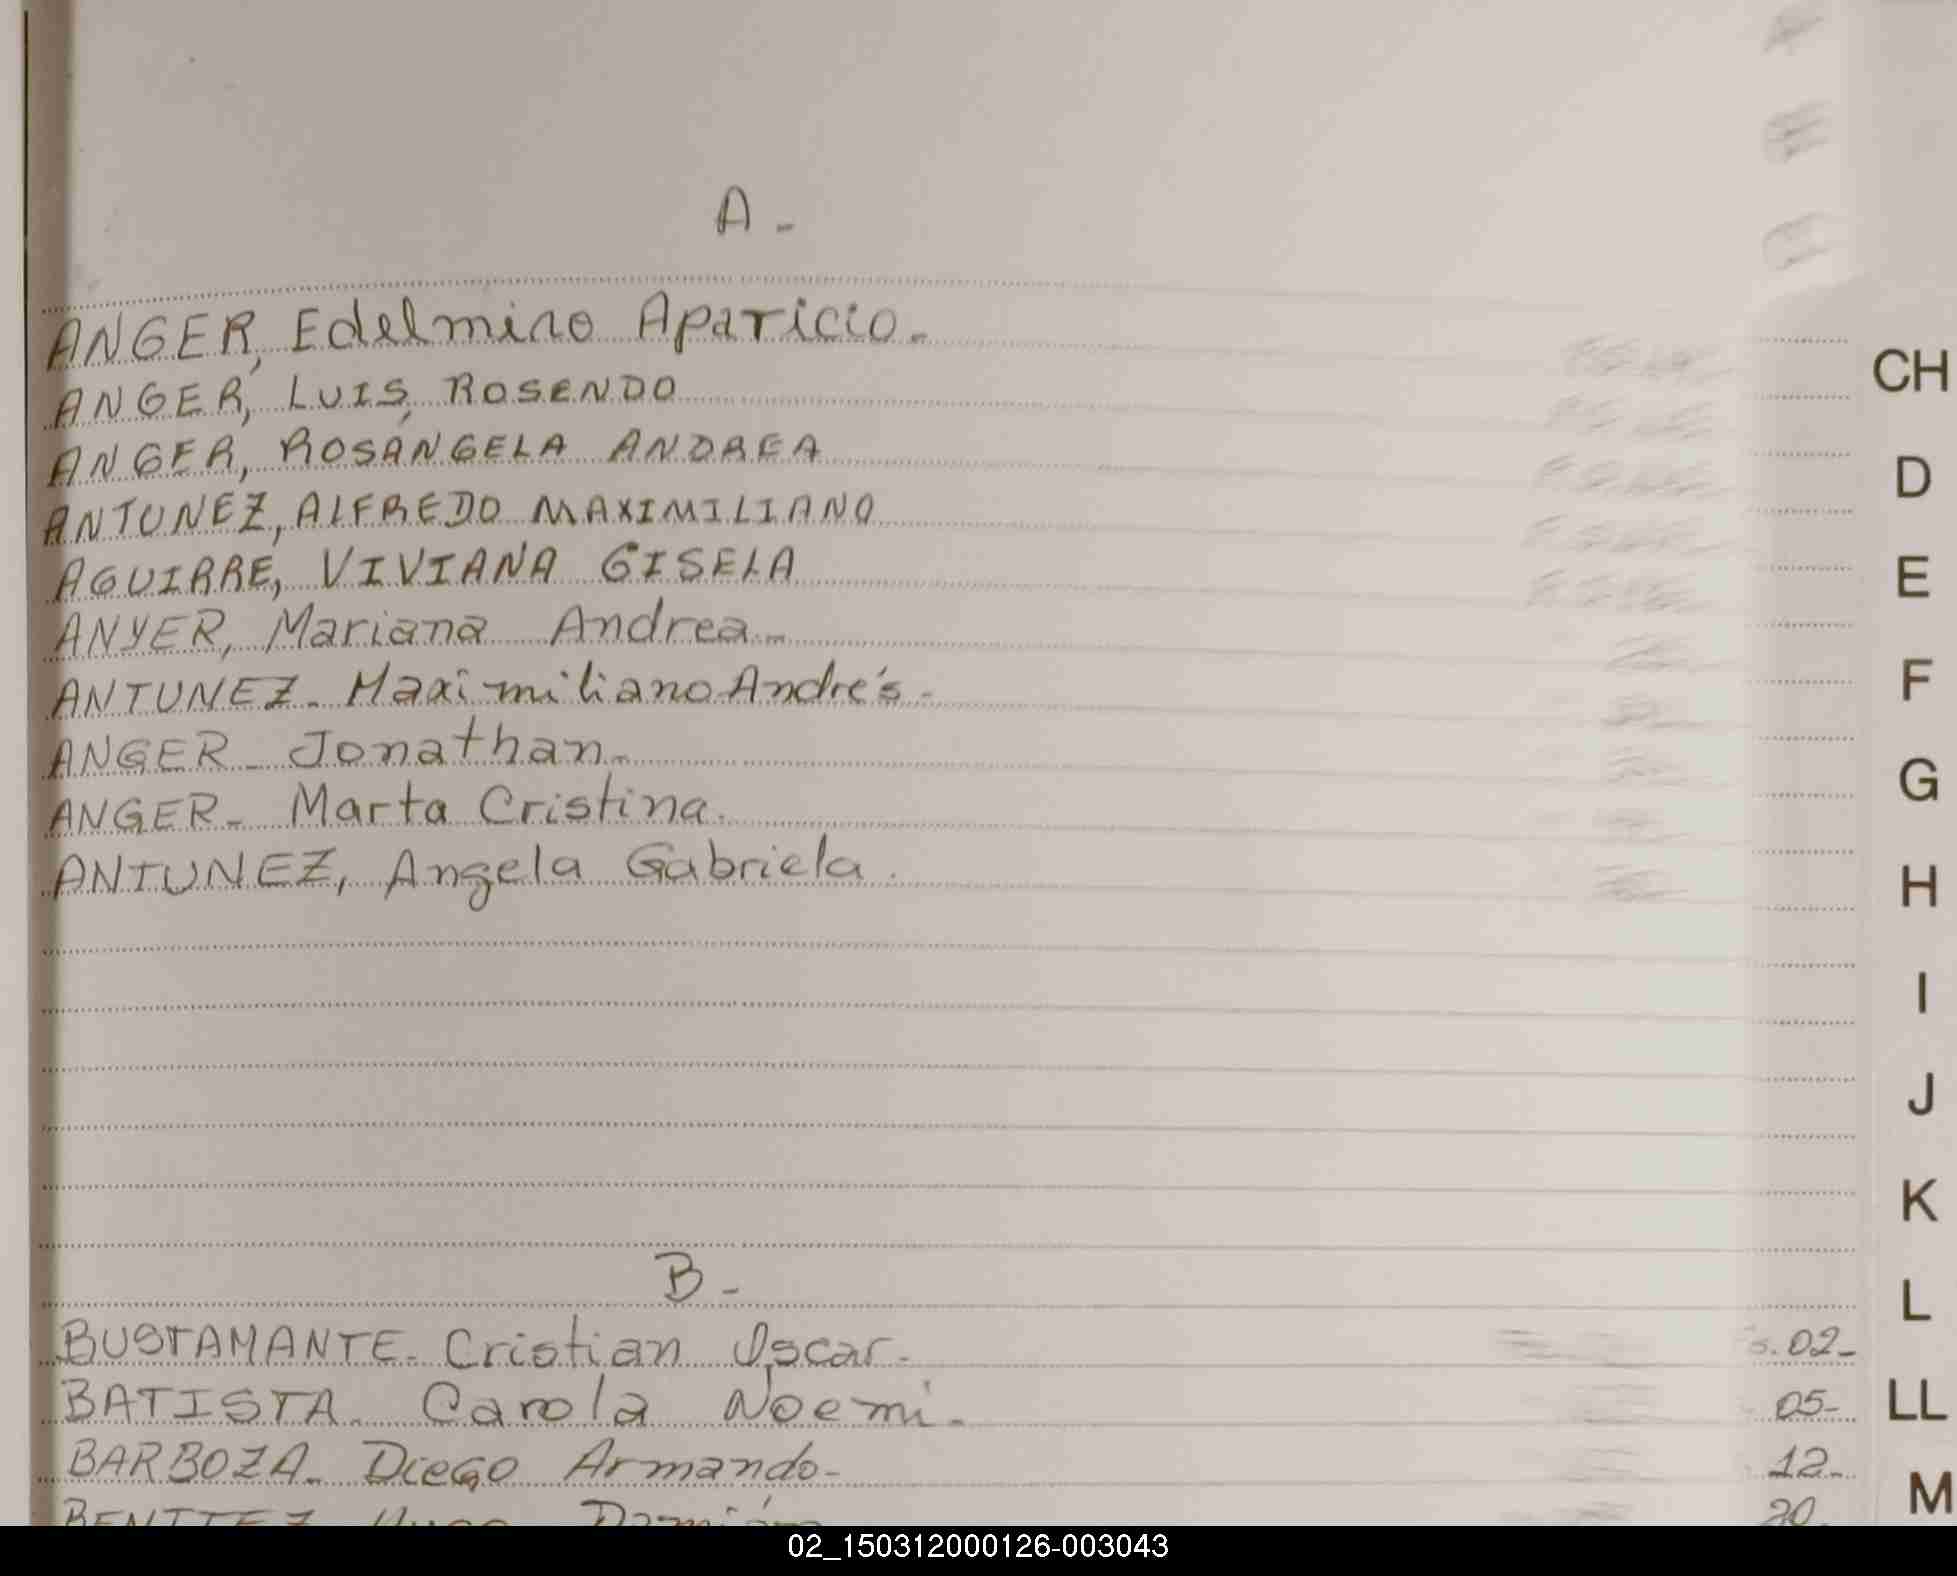 A-
ANGER, Edelmiro Aparicio-
ANGER, LUIS, ROSENDO
ANGER, ROSÁNGELA ANDREA
ANTUNEZ, ALFREDO MAXIMILIANO
AGUIRRE, VIVIANA GISELA
ANYER, Mariana Andrea-
ANTUNEZ- Maximiliano Andrés-
ANGER- Jonathan-
ANGER- Marta Cristina.
ANTUNEZ, Angela Gabriela.
B-
BUSTAMANTE- Cristian Oscar- 02-
BATISTA- Carola Noemí- 05-
BARBOZA- Diego Armando- 12-
BENITEZ Hugo Damián 20-
CH
D
E
F
G
H
I
J
K
L
LL
M
02_150312000126-003043